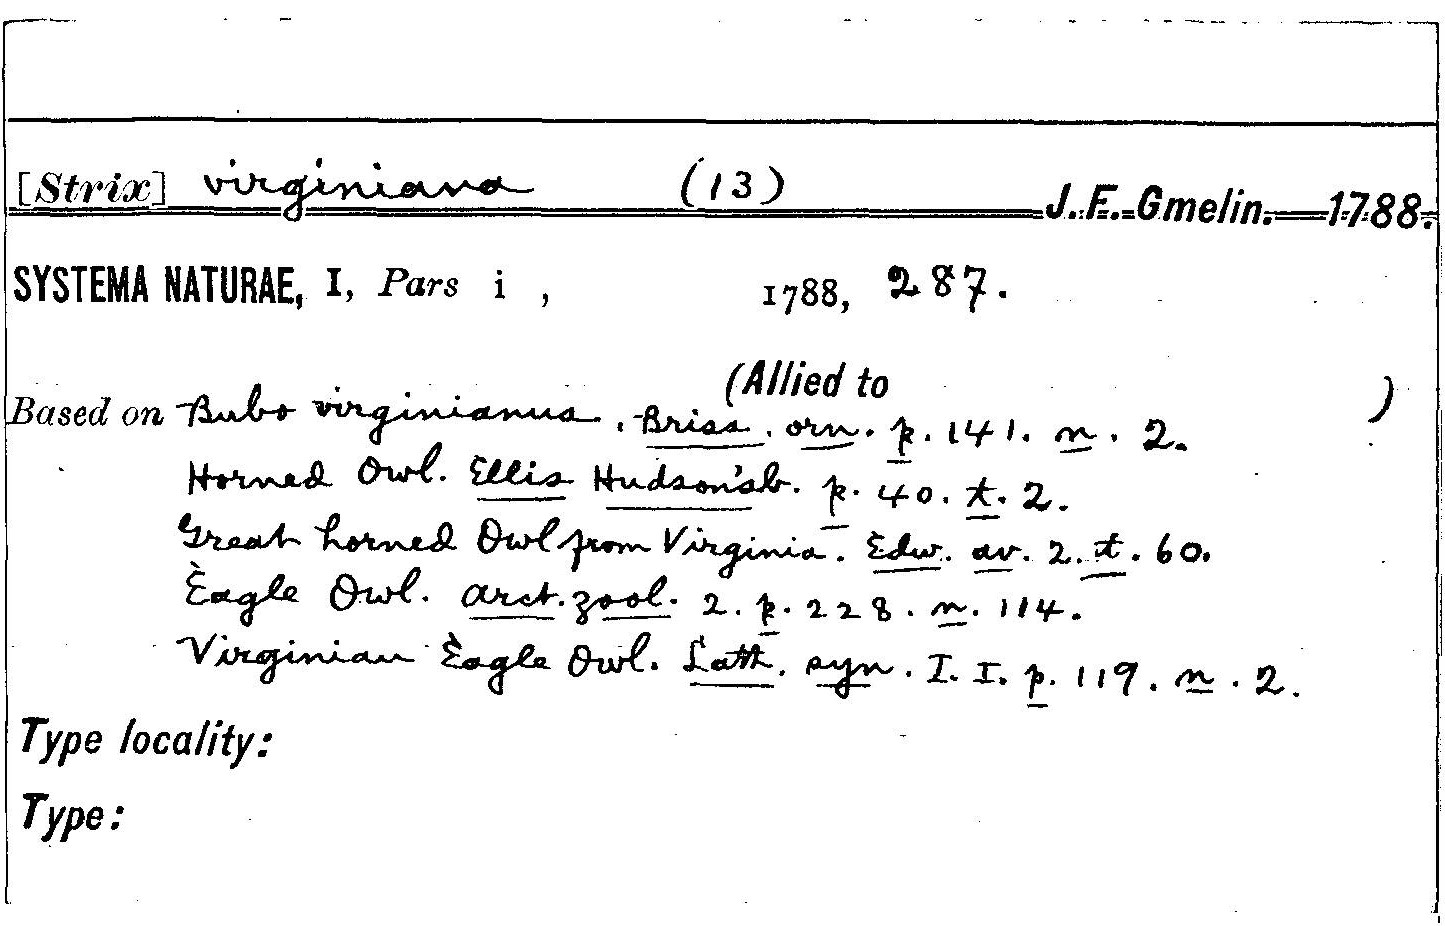 [Strix] virginiana (13) J. F. Gmelin. 1788.
SYSTEMA NATURAE, I, Pars i , 1788, 287.
(Allied to )
Based on Bubo virginianus. Briss. orn. p. 141. n. 2.
Horned Owl. Ellis Hudson's b. p. 40. t. 2.
Great horned Owl from Virginia. Edw. av. 2. t. 60.
Eagle Owl. arct. zool. 2. p. 228. n. 114.
Virginian Eagle Owl. Lath. syn. I. I. p. 119. n. 2.
Type locality:
Type: